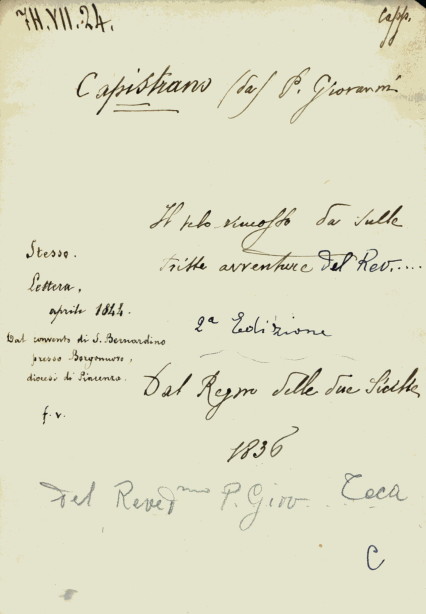 7H.VII.24.
Capp.
Capistrano (da) P. Giovanni
Il velo rimosso da sulle
triste avventure del Rev.....
2ª Edizione
Dal Regno delle due Sicilie
1836
Stesso.
Lettera,
aprile 1844.
Dal convento di S. Bernardino
presso Borgonuovo,
diocesi di Piacenza.
f. v.
del Revedmo P. Giov. Teca
C